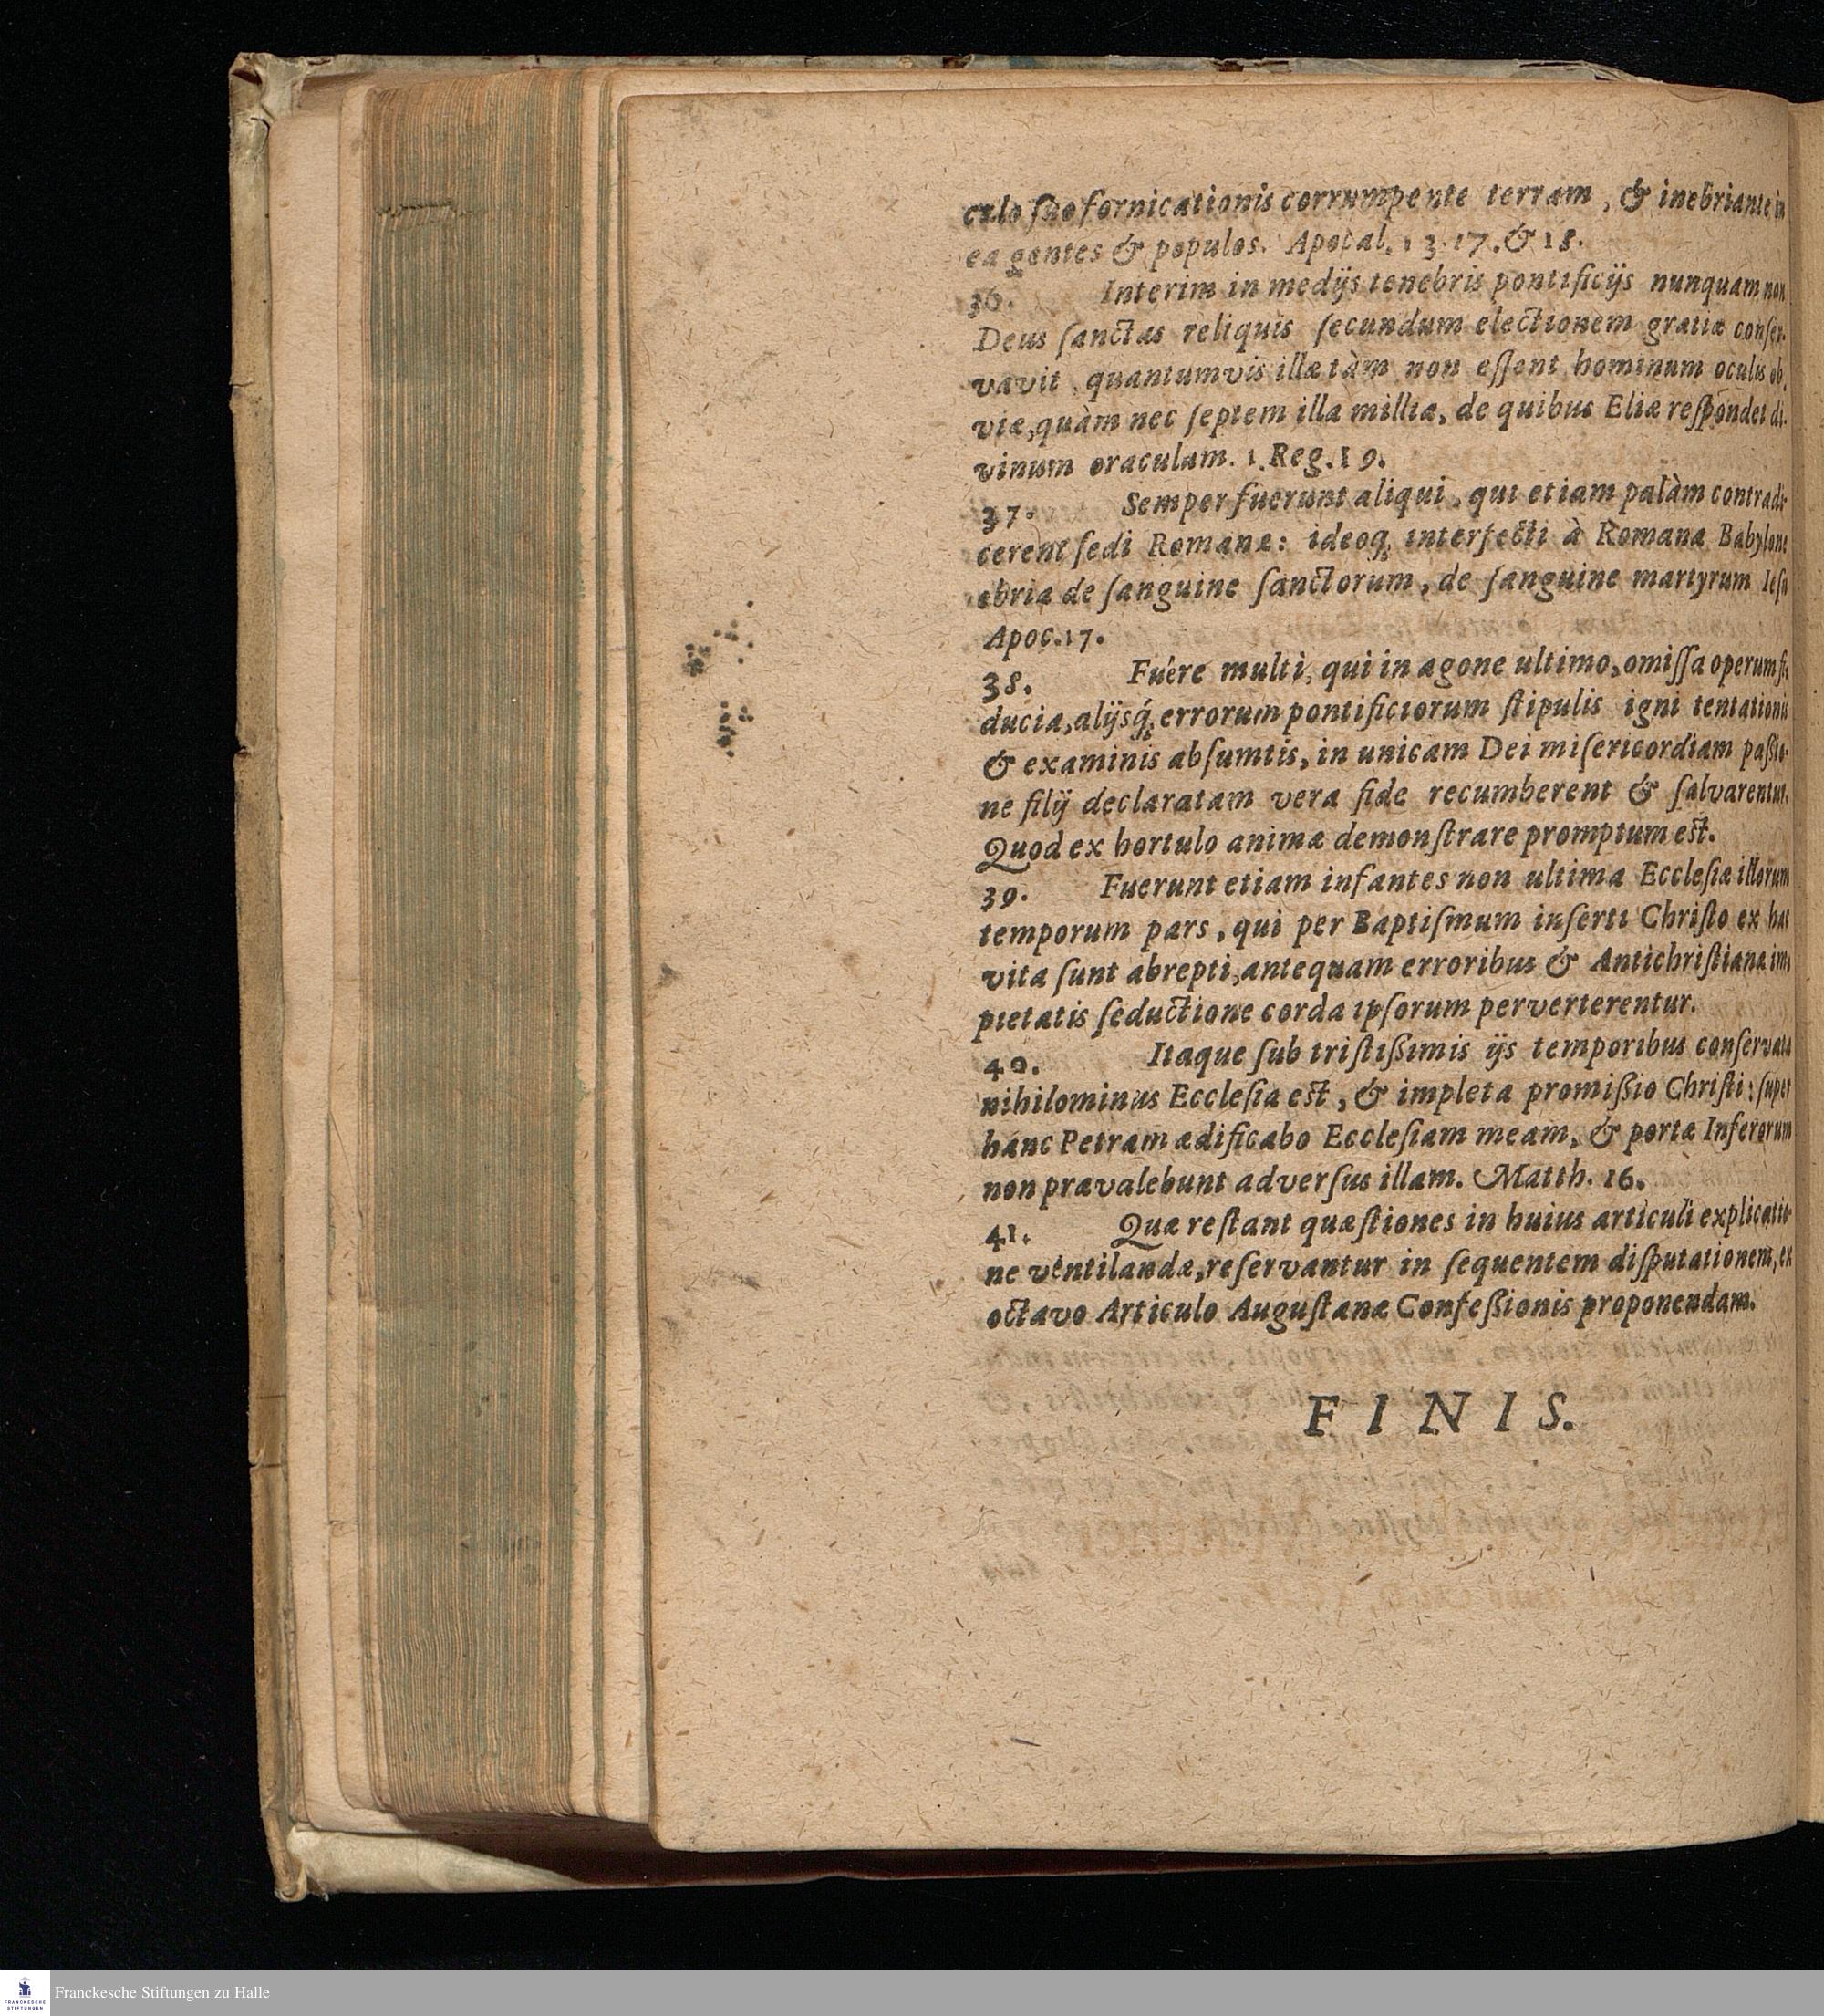 culo suo fornicationis corrumpente terram, & inebriante in
ea gentes & populos. Apocal. 13. 17. & 18.
36. Interim in medijs tenebris pontificijs nunquam non
Deus sanctas reliquis secundum electionem gratiæ conser-
vavit, quantumvis illæ tàm non essent hominum oculis ob-
viæ, quàm nec septem illa millia, de quibus Eliæ respondet di-
vinum oraculum. 1. Reg. 19.
37. Semper fuerunt aliqui, qui etiam palàm contradi-
cerent sedi Romanæ: ideoq; interfecti à Romana Babylone
ebria de sanguine sanctorum, de sanguine martyrum Iesu
Apoc. 17.
38. Fuêre multi, qui in agone ultimo, omissa operum fi-
ducia, alijsq́; errorum pontificiorum stipulis igni tentationis
& examinis absumtis, in unicam Dei misericordiam passio-
ne filij declaratam vera fide recumberent & salvarentur.
Quod ex hortulo animæ demonstrare promptum est.
39. Fuerunt etiam infantes non ultima Ecclesiæ illorum
temporum pars, qui per Baptismum inserti Christo ex hac
vita sunt abrepti, antequam erroribus & Antichristiana im-
pietatis seductione corda ipsorum perverterentur.
40. Itaque sub tristissimis ijs temporibus conservata
nihilominus Ecclesia est, & impleta promissio Christi: super
hanc Petram ædificabo Ecclesiam meam, & portæ Inferorum
non prævalebunt adversus illam. Matth. 16.
41. Quæ restant quæstiones in huius articuli explicatio-
ne ventilandæ, reservantur in sequentem disputationem, ex
octavo Articulo Augustanæ Confessionis proponendam.
FINIS.
Franckesche Stiftungen zu Halle
FRANCKESCHE
STIFTUNGEN